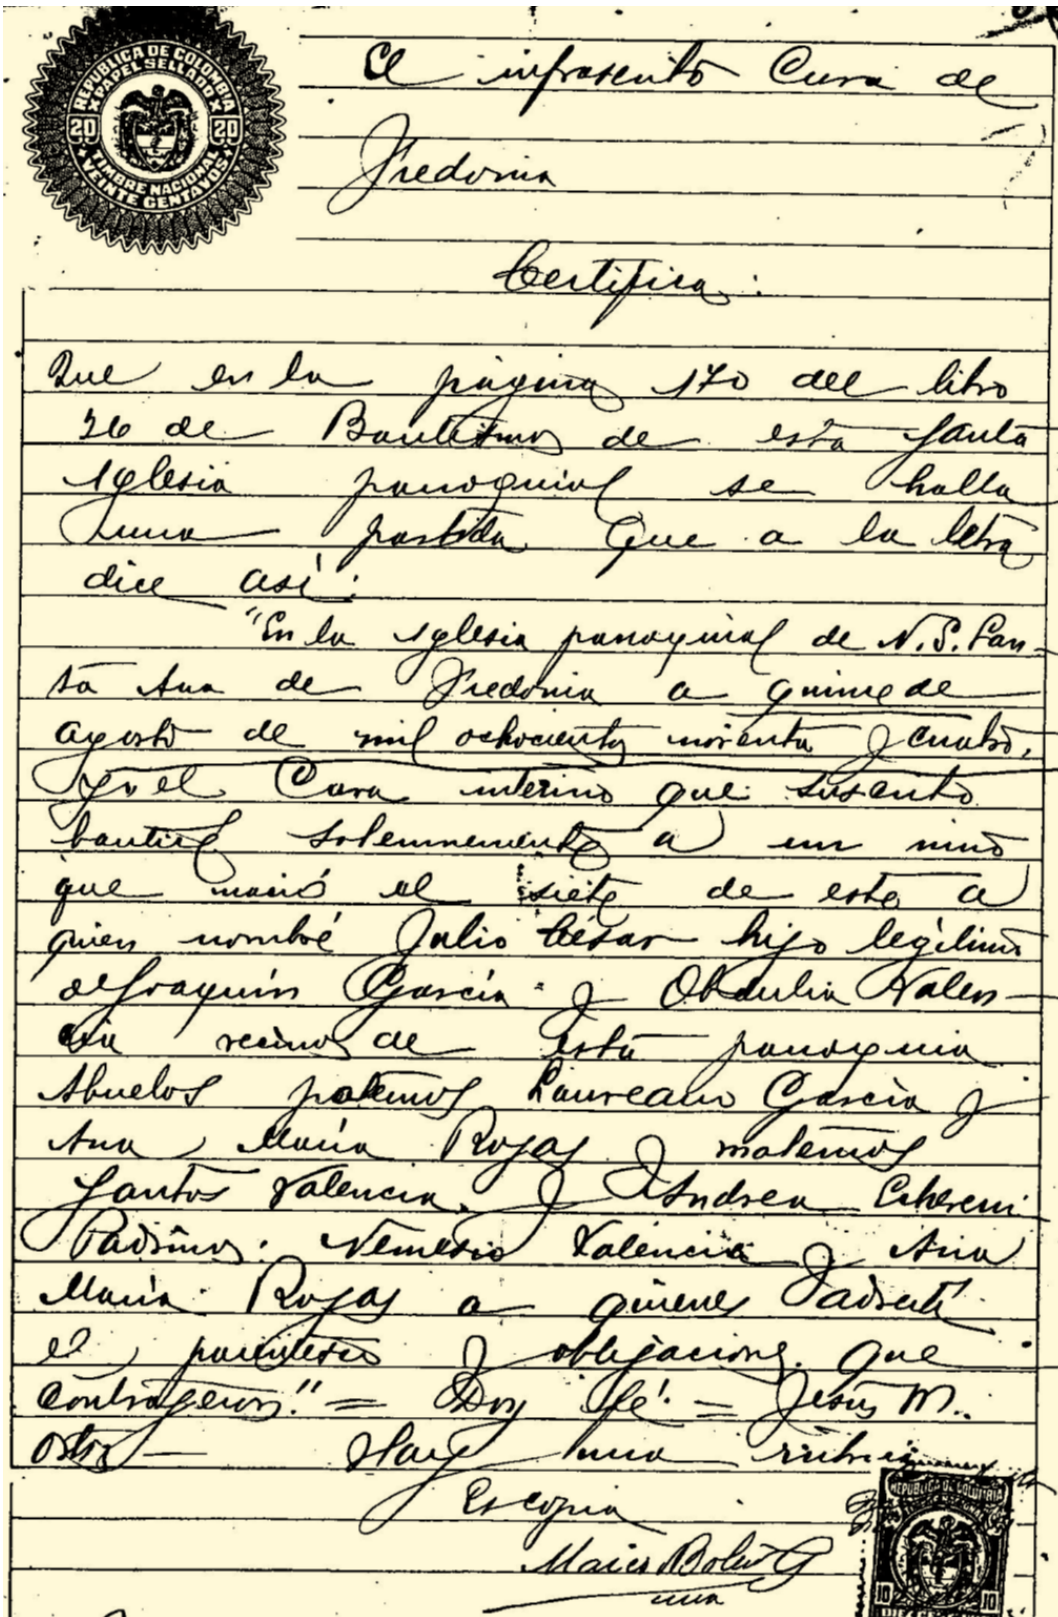 REPUBLICA DE COLOMBIA
PAPEL SELLADO
20 20
TIMBRE NACIONAL
VEINTE CENTAVOS
El infrascrito Cura de
Fredonia
Certifica:
Que en la página 170 del libro
26 de Bautismos de esta Santa
Iglesia parroquial se halla
una partida que a la letra
dice así:
"En la Iglesia parroquial de N.S. San-
ta Ana de Fredonia a quince de
agosto de mil ochocientos noventa y cuatro,
yo el Cura interino que suscribo
bauticé solemnemente a un niño
que nació el siete de este a
quien nombré Julio César hijo legítimo
de Joaquín García y Obdulia Valen-
cia vecinos de esta parroquia
Abuelos paternos Laureano García y
Ana María Rojas y maternos
Santos Valencia y Andrea
Padrinos: Nemesio Valencia y Ana
María Rojas a quienes advertí
el parentesco y obligaciones que
contrageron." = Doy fé = Jesús M.
Ortiz — Hay una rúbrica
Es copia
REPUBLICA DE COLOMBIA
10 10